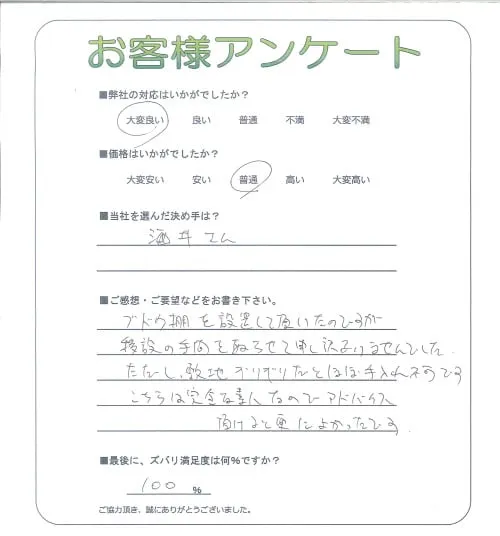 お客様アンケート
■弊社の対応はいかがでしたか？
大変良い 良い 普通 不満 大変不満
■価格はいかがでしたか？
大変安い 安い 普通 高い 大変高い
■当社を選んだ決め手は？
酒井さん
■ご感想・ご要望などをお書き下さい。
ブドウ棚を設置して頂いたのですが
移設の手間を取らせて申し訳ありませんでした.
ただし、敷地ギリギリだとほぼ手入れ不可です
こちらは完全な素人なのでアドバイス
頂けると更によかったです.
■最後に、ズバリ満足度は何％ですか？
100 %
ご協力頂き、誠にありがとうございました。